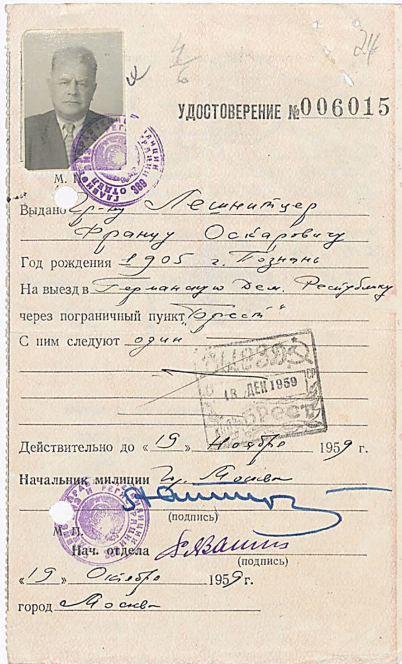 4/6
24
УДОСТОВЕРЕНИЕ №006015
М. П.
Выдано Гр-ну Лешнитцер
Францу Оскаровичу
Год рождения 1905 г. Познань
На выезд в Германскую Дем. Республику
через пограничный пункт "Брест"
С ним следуют один
ВЫЕЗД
СССР
18 ДЕК 1959
БРЕСТ
Действительно до «19» Ноября 1959 г.
Начальник милиции гр. Москва
(подпись)
М. П.
Нач. отдела
(подпись)
«19» Октября 1959 г.
город Москва